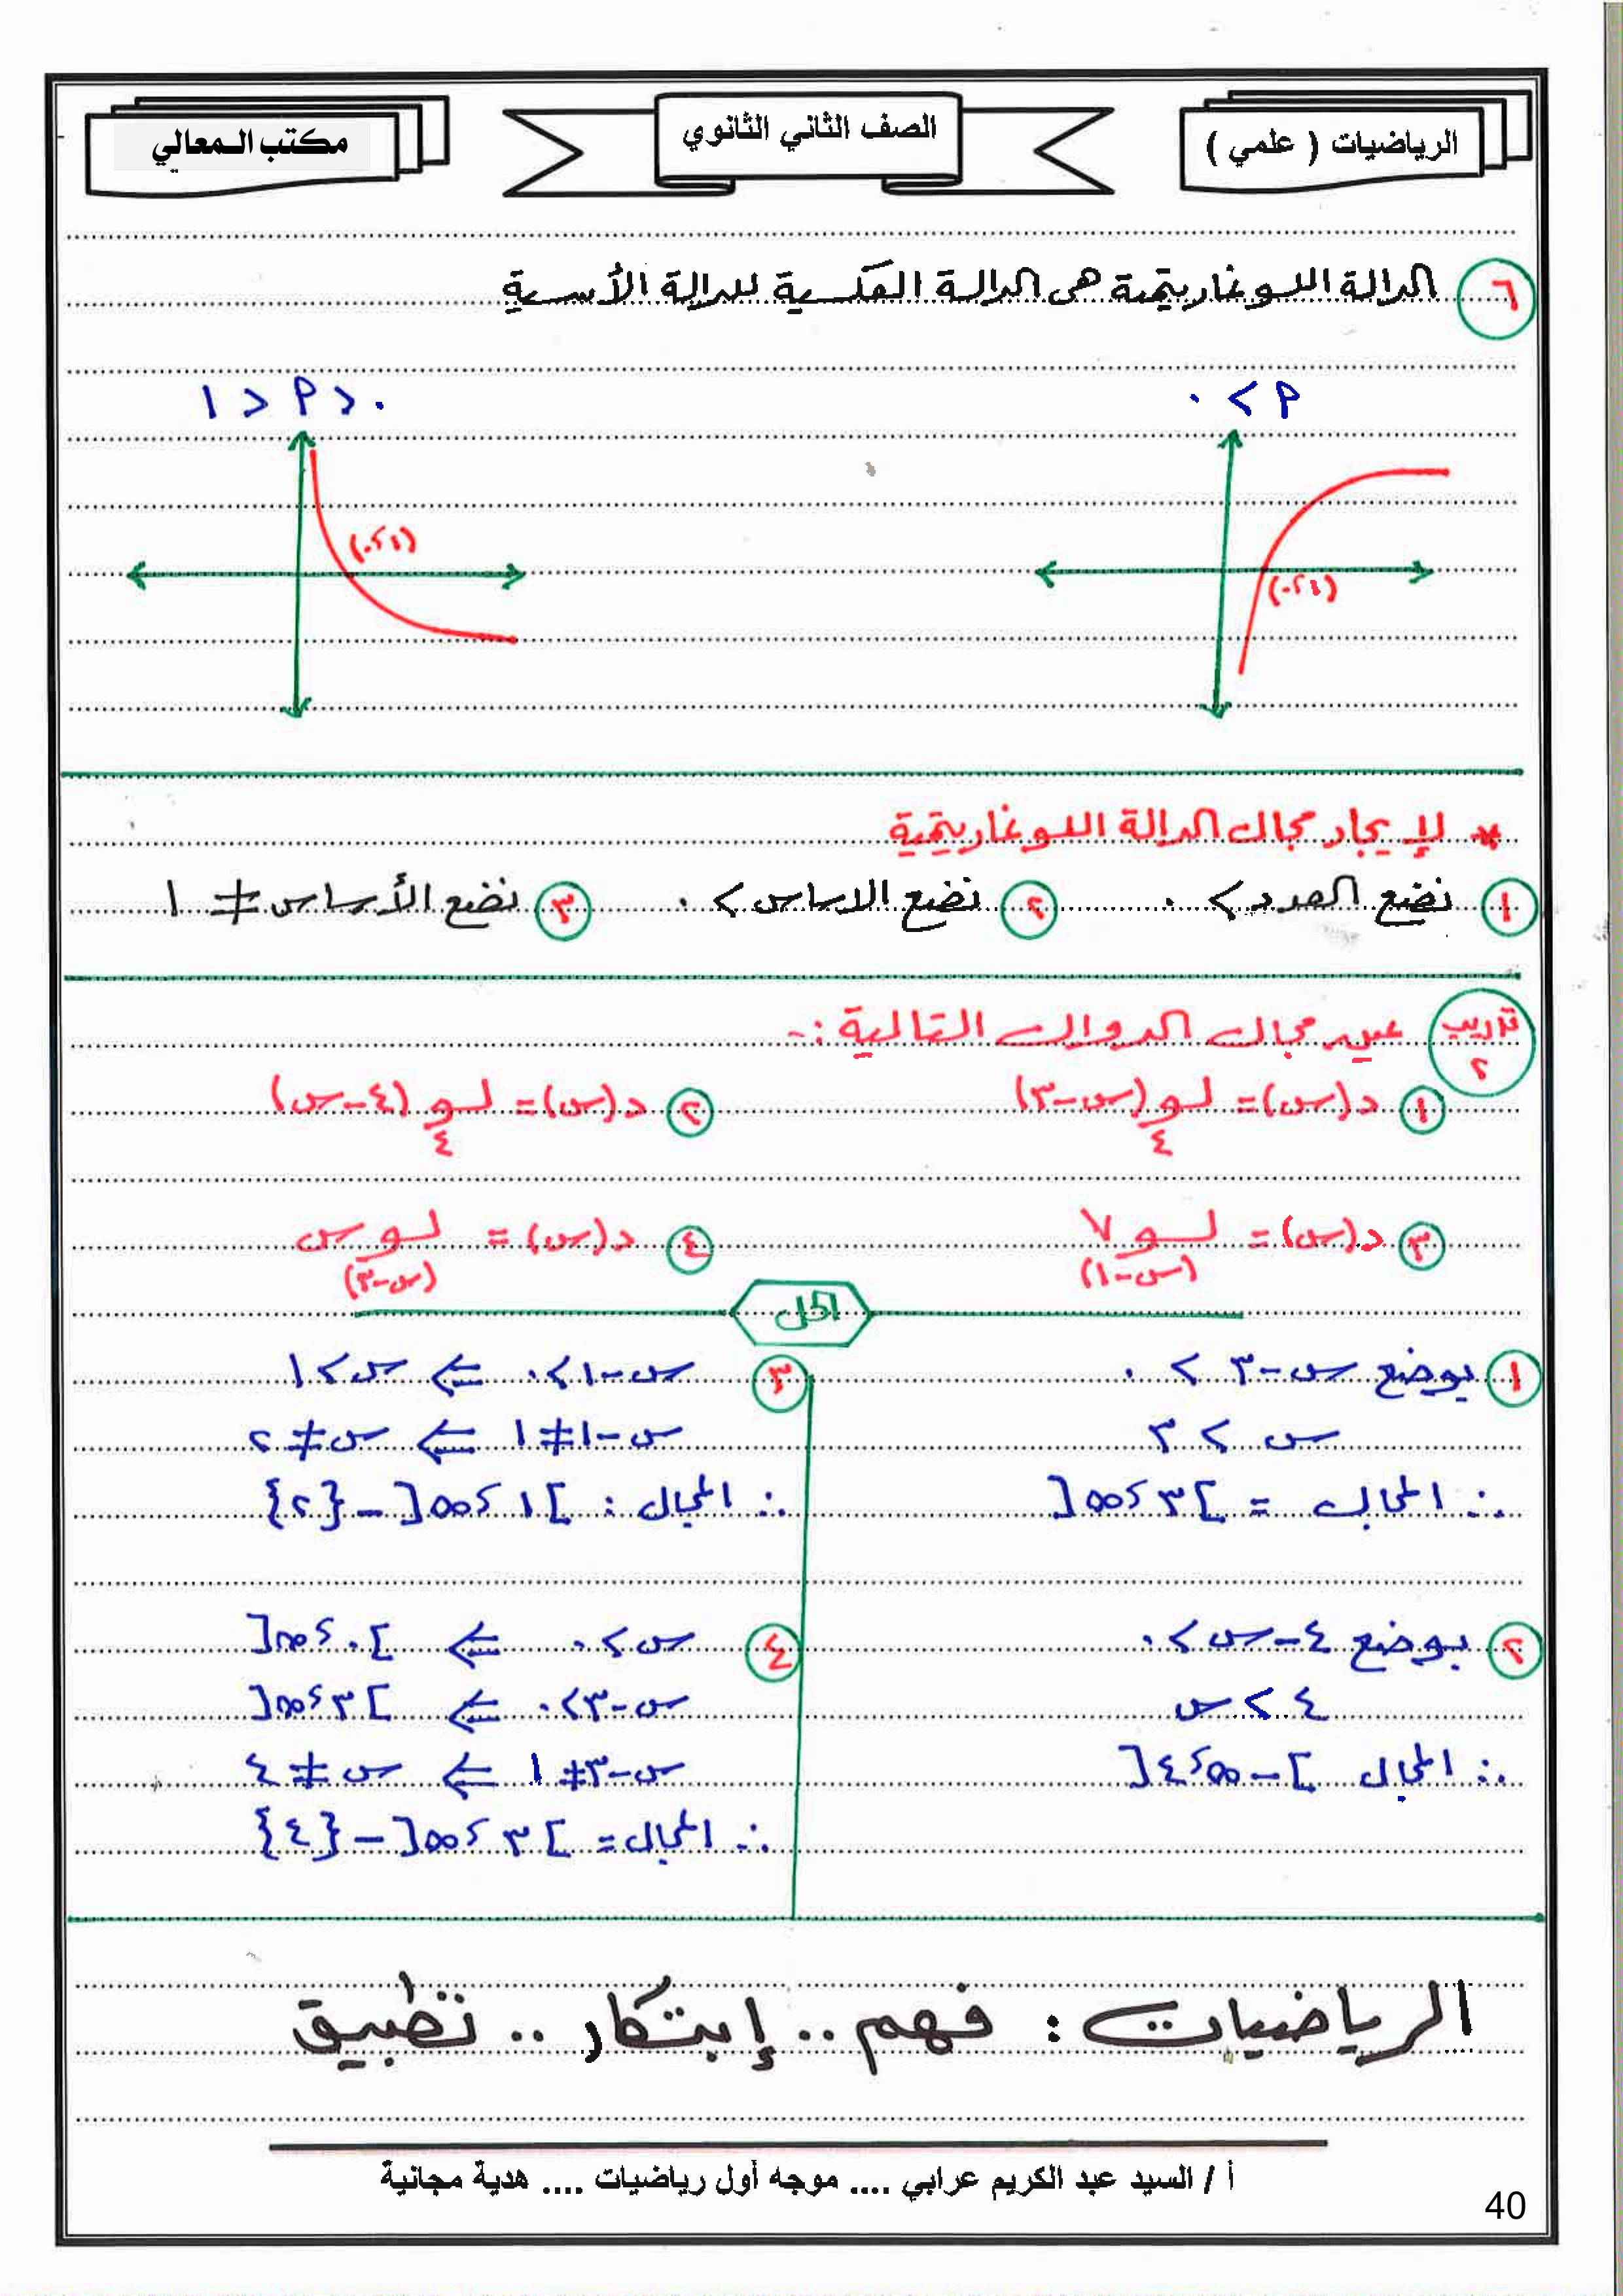 الرياضيات ( علمي )
الصف الثاني الثانوي
مكتب المعالي
٦ الدالة اللوغاريتمية هى الدالة العكسية للدالة الأسسية
٩ > ٠
٠ < ٩ < ١
(١، ٠)
(١، ٠)
* لإيجاد مجال الدالة اللوغاريتمية
١ نضع العدد > ٠ ٢ نضع الاساس > ٠ ٣ نضع الأساس ≠ ١
تدريب ٢ عين مجال الدوال التالية :-
١ د(س) = لو٤ (س-٣) ٢ د(س) = لو٤ (٤-س)
٣ د(س) = لو(س-١) ٧ ٤ د(س) = لو(س-٣) س
الحل
١ بوضع س-٣ > ٠
س > ٣
∴ المجال = ]٣، ∞[
٢ بوضع ٤-س > ٠
٤ > س
∴ المجال ]-∞، ٤[
٣ س-١ > ٠ ⇐ س > ١
س-١ ≠ ١ ⇐ س ≠ ٢
∴ المجال : ]١، ∞[ - {٢}
٤ س > ٠ ⇐ ]٠، ∞[
س-٣ > ٠ ⇐ ]٣، ∞[
س-٣ ≠ ١ ⇐ س ≠ ٤
∴ المجال = ]٣، ∞[ - {٤}
الرياضيات : فهم .. إبتكار .. تطبيق
أ / السيد عبد الكريم عرابي .... موجه أول رياضيات .... هدية مجانية
40